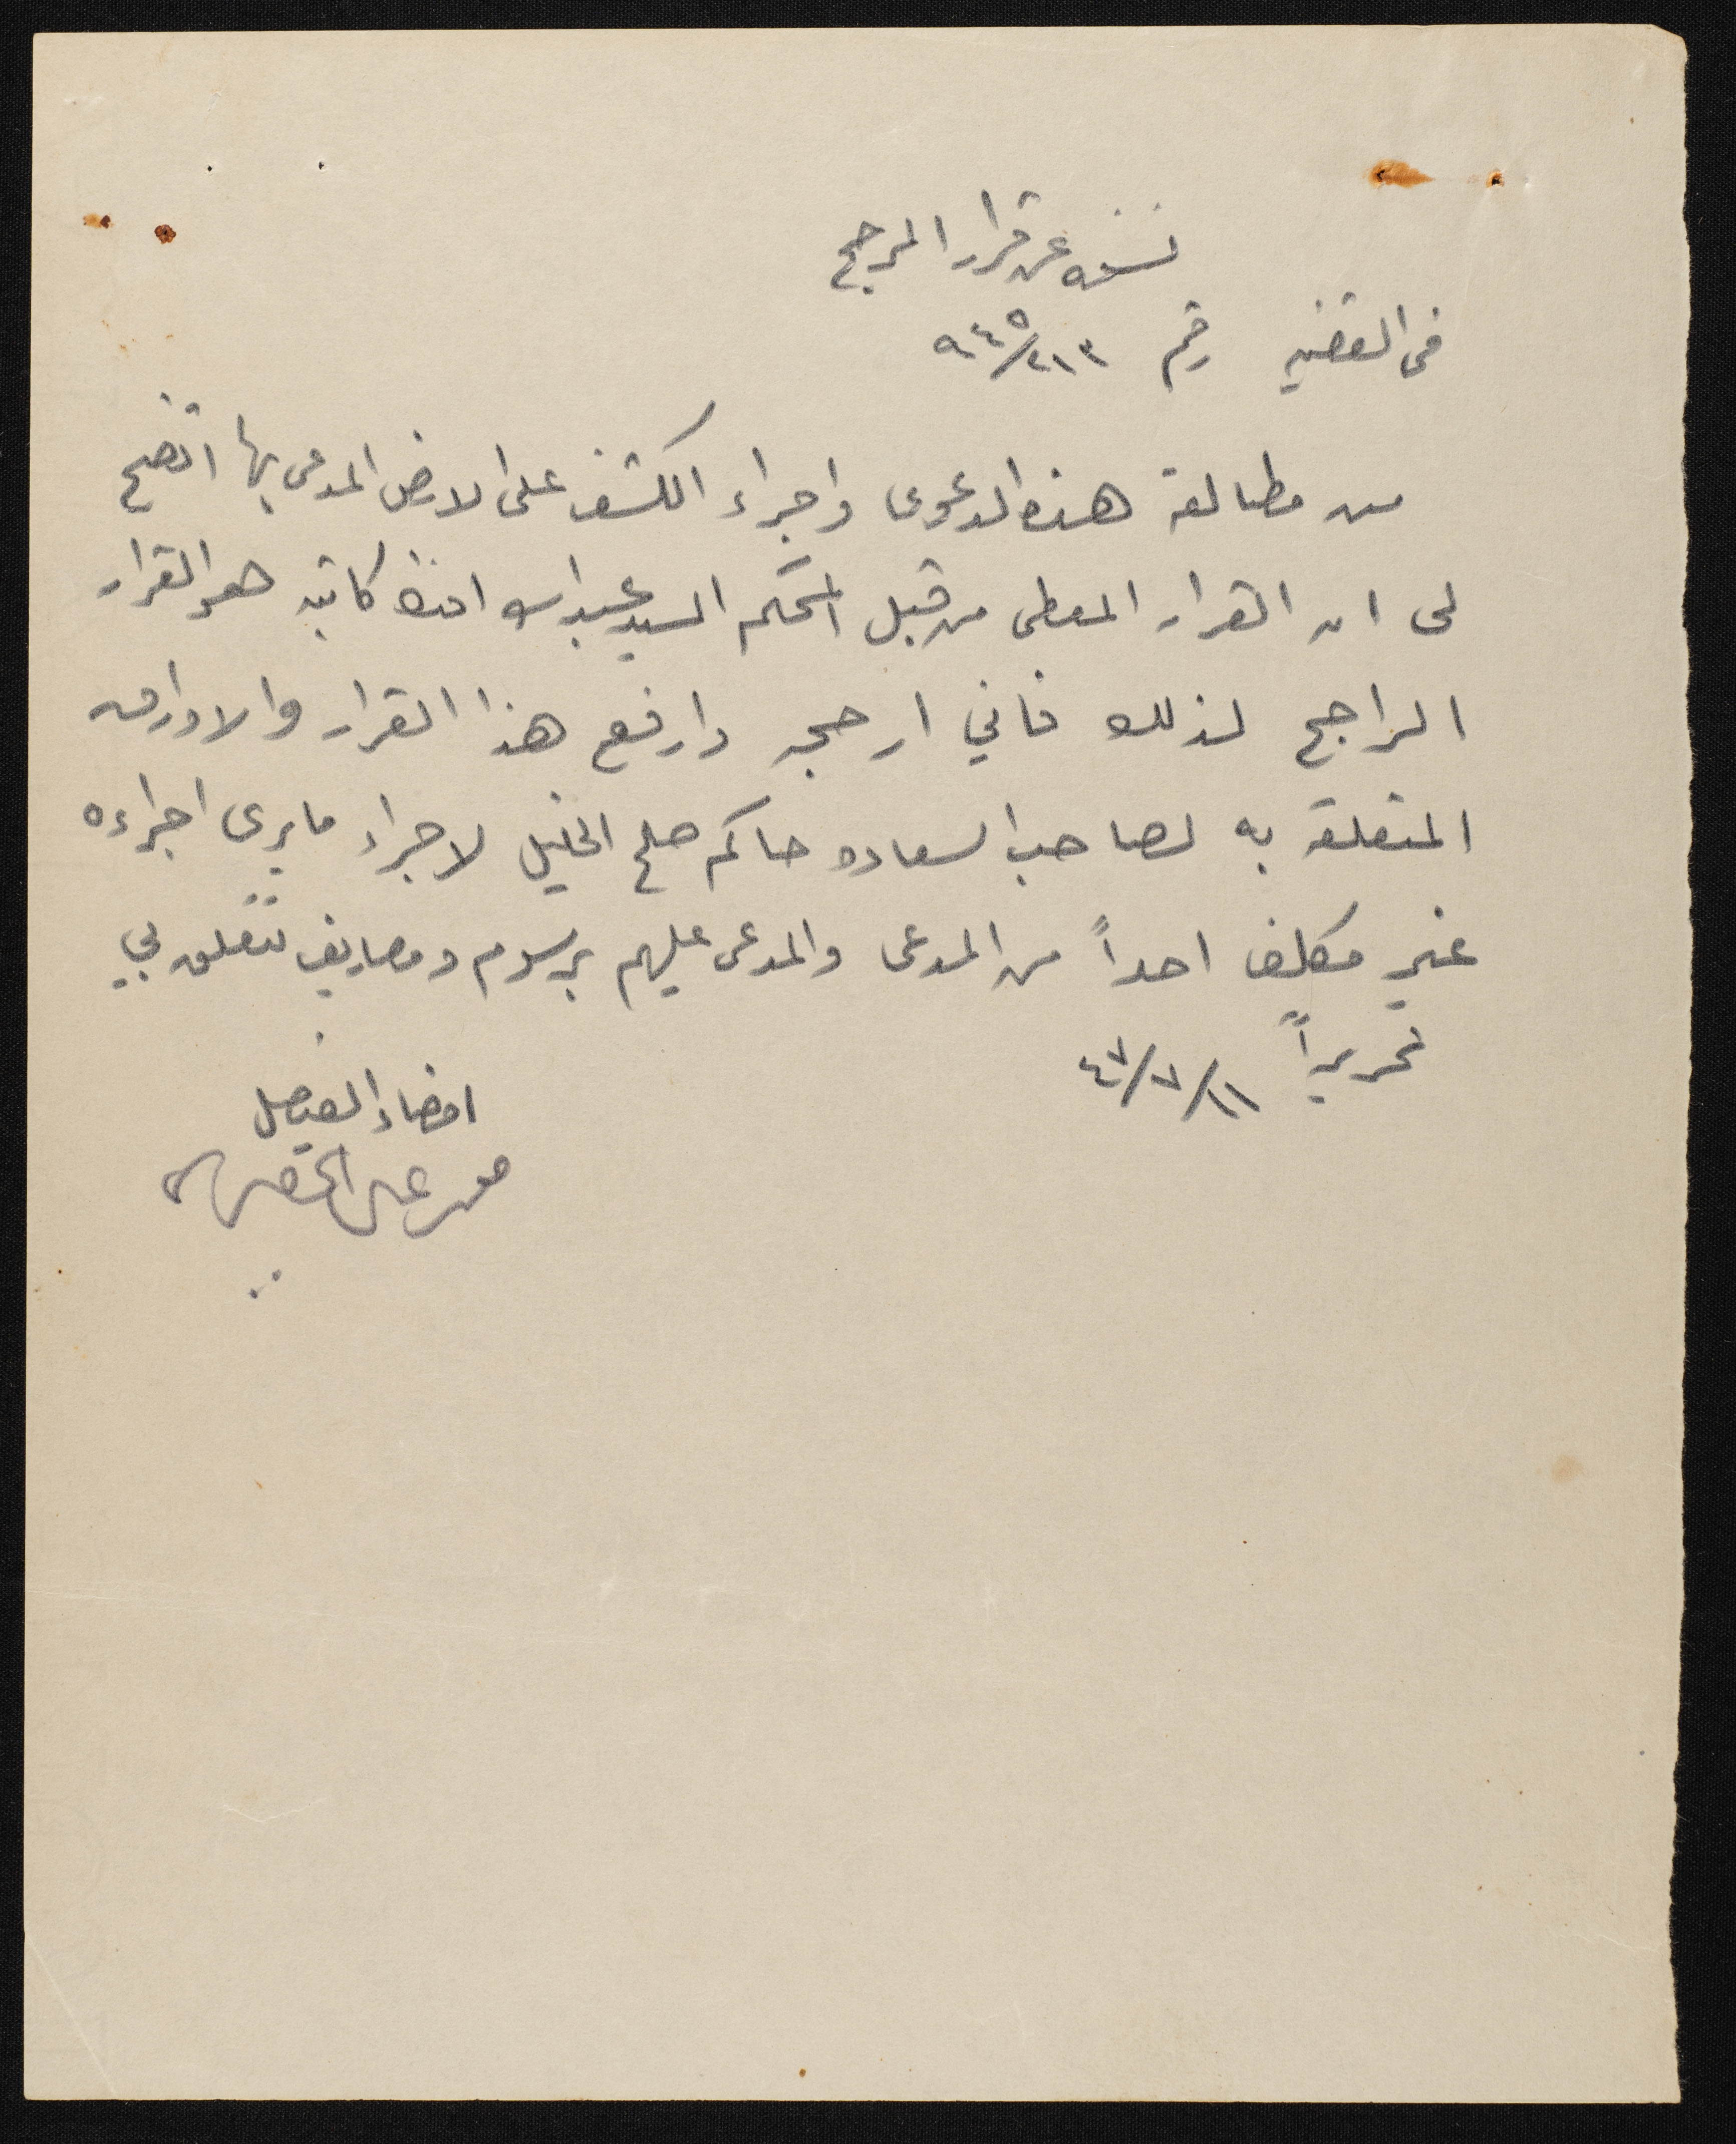 نسخه عن قرار المرجح
فى القضيه رقم ٢١٣/٩٤٥
من مطالعة هذه الدعوى واجراء الكشف على الارض المدعى بها اتضح
لى ان القرار المعطى من قبل المحكم السيد عبدالله افندي كاتبه هو القرار
الراجح لذلك فاني ارجحه وارفع هذا القرار والاوراق
المتعلقة به لصاحب السعاده حاكم صلح الخليل لاجراء ما يرى اجراءه
غير مكلف احداً من المدعى والمدعى عليهم برسوم ومصاريف تتعلق بي
تحريراً ١١/٧/٤٧
امضاء الفيصل